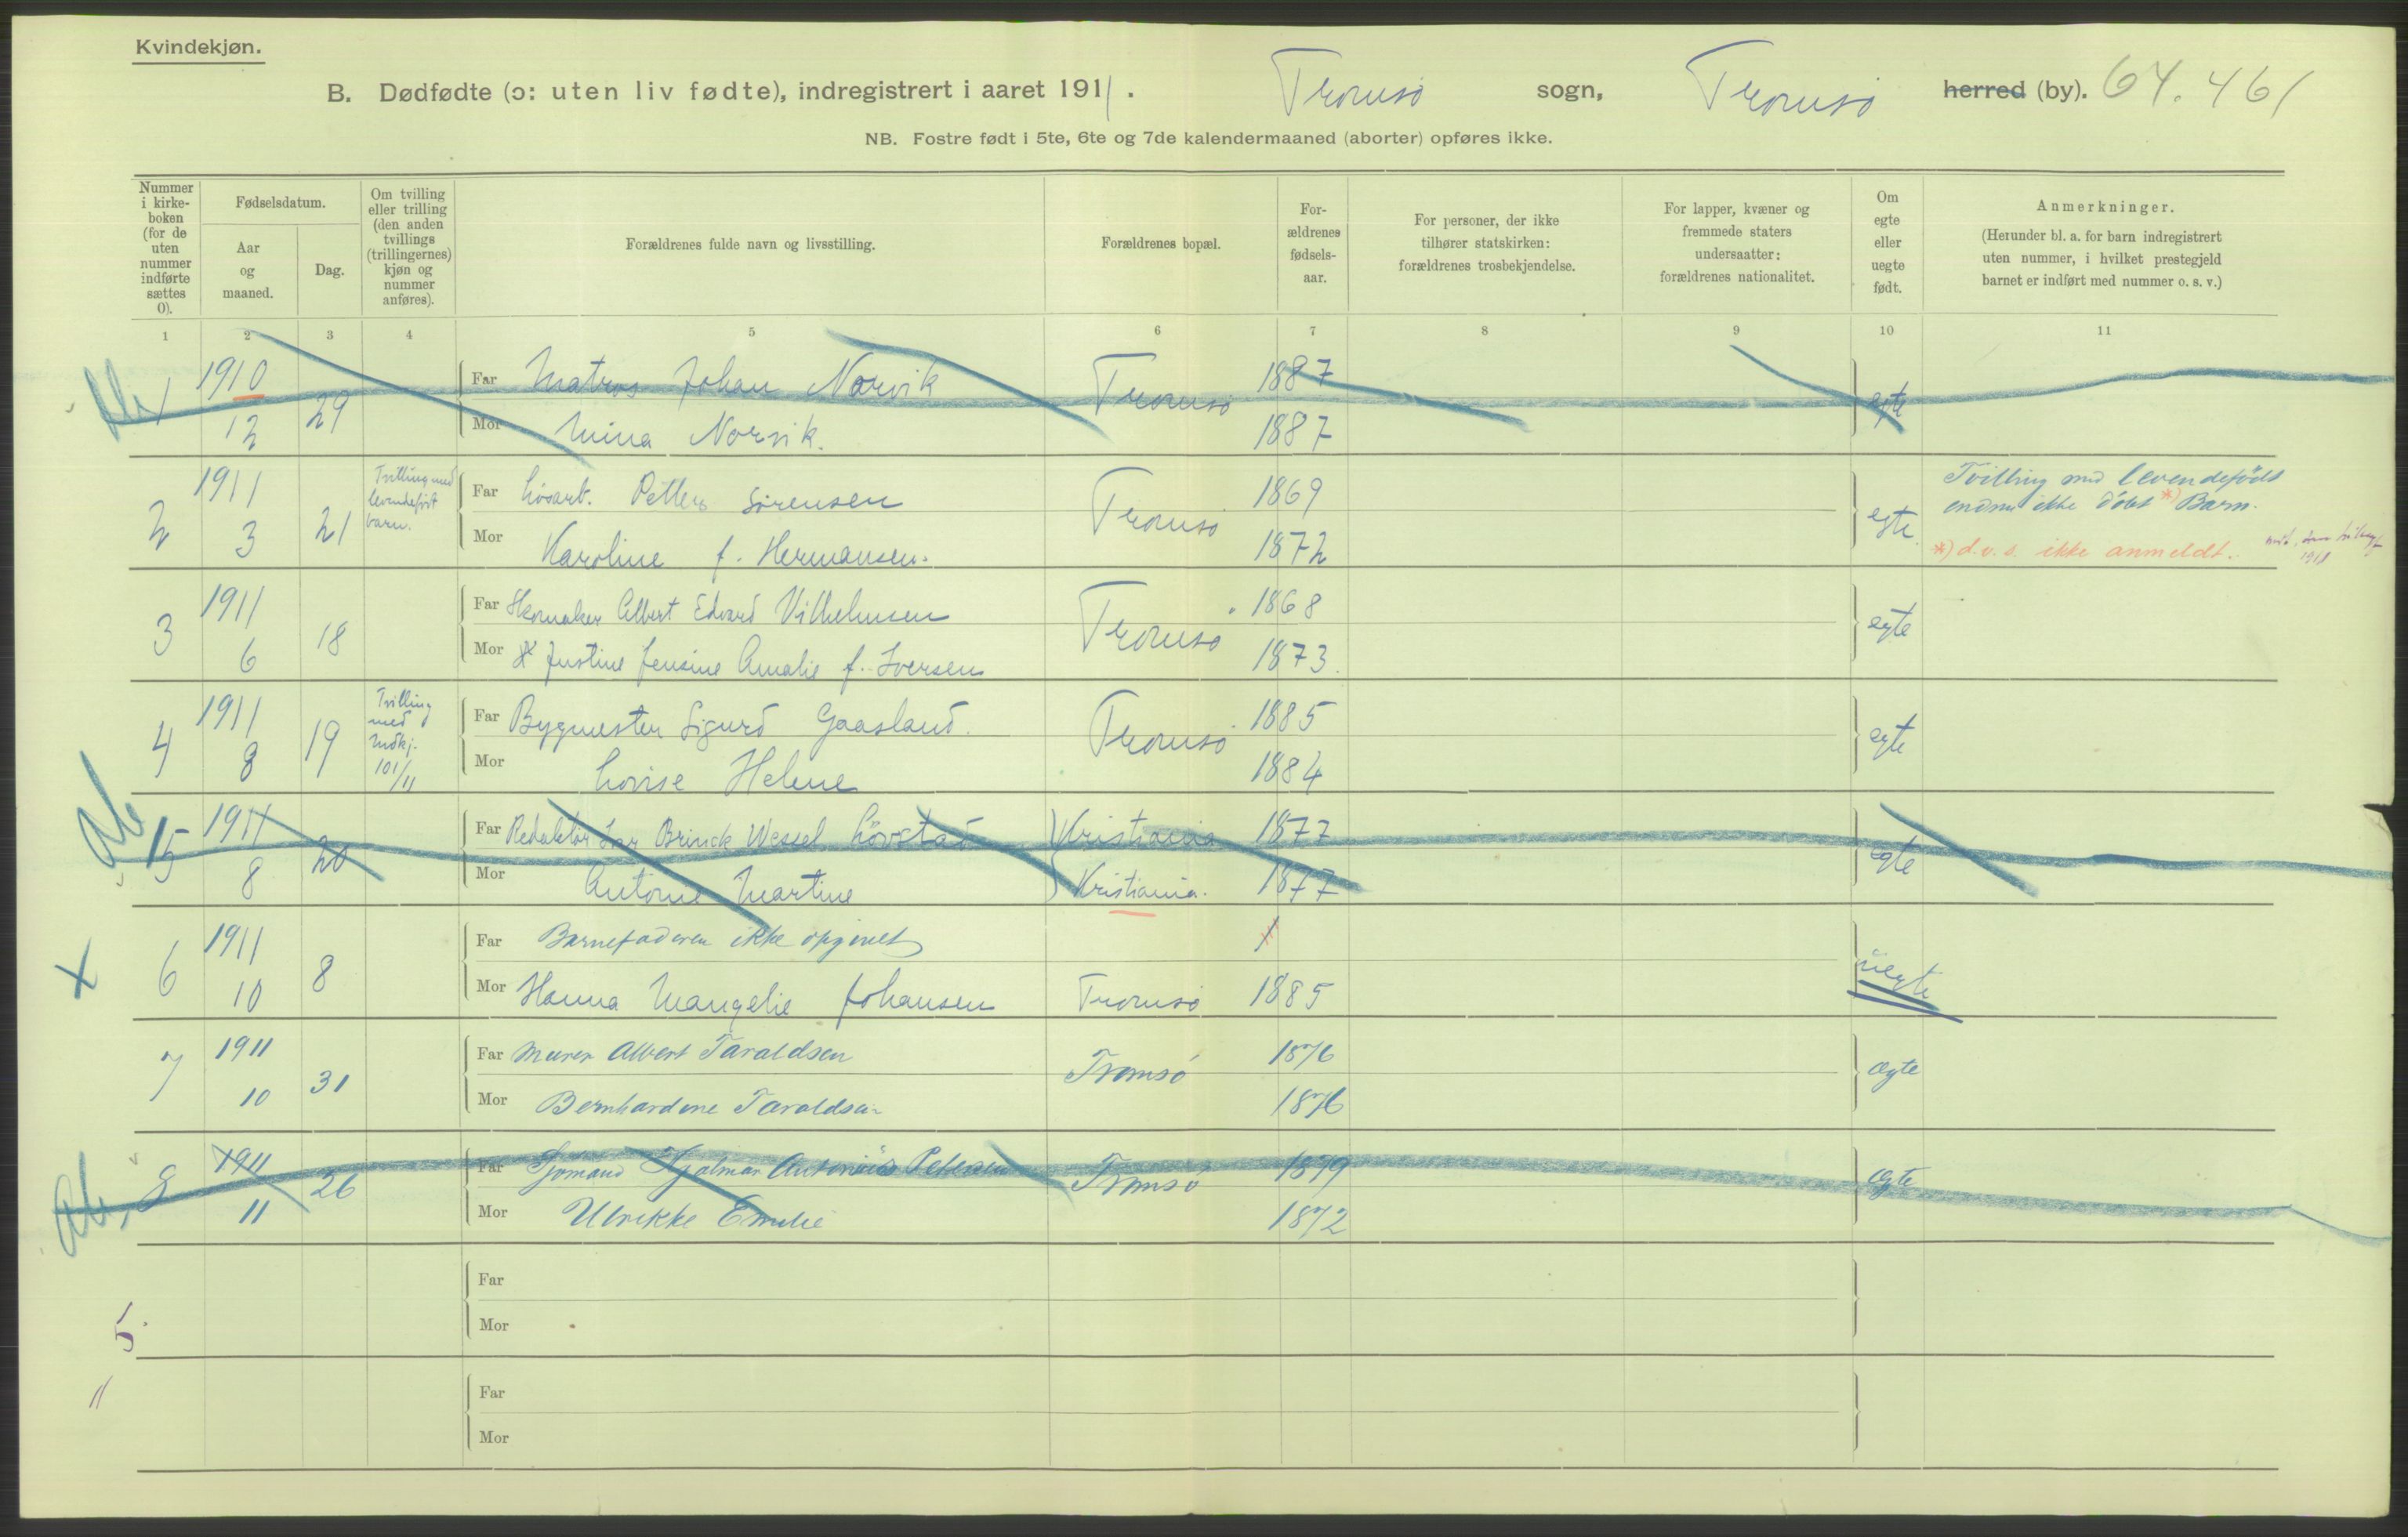 Kvindekjøn.
B. Dødfødte (ɔ: uten liv fødte), indregistrert i aaret 1911. Tromsø sogn, Tromsø herred (by). 64.461
NB. Fostre født i 5te, 6te og 7de kalendermaaned (aborter) opføres ikke.
Nummer i kirke-boken (for de uten nummer indførte sættes 0).
Fødselsdatum.
Aar og maaned.
Dag.
Om tvilling eller trilling (den anden tvillings (trillingernes) kjøn og nummer anføres).
Forældrenes fulde navn og livsstilling.
Forældrenes bopæl.
For-ældrenes fødsels-aar.
For personer, der ikke tilhører statskirken: forældrenes trosbekjendelse.
For lapper, kvæner og fremmede staters undersaatter: forældrenes nationalitet.
Om egte eller uegte født.
Anmerkninger.
(Herunder bl. a. for barn indregistrert uten nummer, i hvilket prestegjeld barnet er indført med nummer o. s. v.)
1 2 3 4 5 6 7 8 9 10 11
1 1910 12 29 Far Matros Johan Norvik Tromsø 1887 egte
Mor Mina Norvik. 1887
2 1911 3 21 Tvilling med levendefødt barn. Far Løsarb. Petter Sørensen Tromsø 1869 egte Tvilling med levendefødt endnu ikke døbt *) Barn.
Mor Karoline f. Hermansen. 1872 *) d.v.s. ikke anmeldt.
3 1911 6 18 Far Skomaker Albert Edvard Vilhelmsen Tromsø 1868 egte
Mor Justine Jensine Amalie f. Iversen 1873.
4 1911 8 19 Tvilling med Mdkj. 101/11 Far Bygmester Sigurd Gaasland. Tromsø 1885 egte
Mor Lovise Helene 1884
Ab 5 1911 8 20 Far Redaktør Brinck Wessel Løvstad Kristiania 1877 egte
Mor Antonie Martine Kristiania. 1877
x 6 1911 10 8 Far Barnefaderen ikke opgivet
Mor Hanna Mangelie Johansen Tromsø 1885 uegte
7 1911 10 31 Far Murer Albert Taraldsen Tromsø 1876 ægte
Mor Bernhardine Taraldsen 1876
Ab. 8 1911 11 26 Far Sjømand Hjalmar Antonius Petersen Tromsø 1879 ægte
Mor Ulrikke Emilie 1872
Far
Mor
5.
Far
Mor